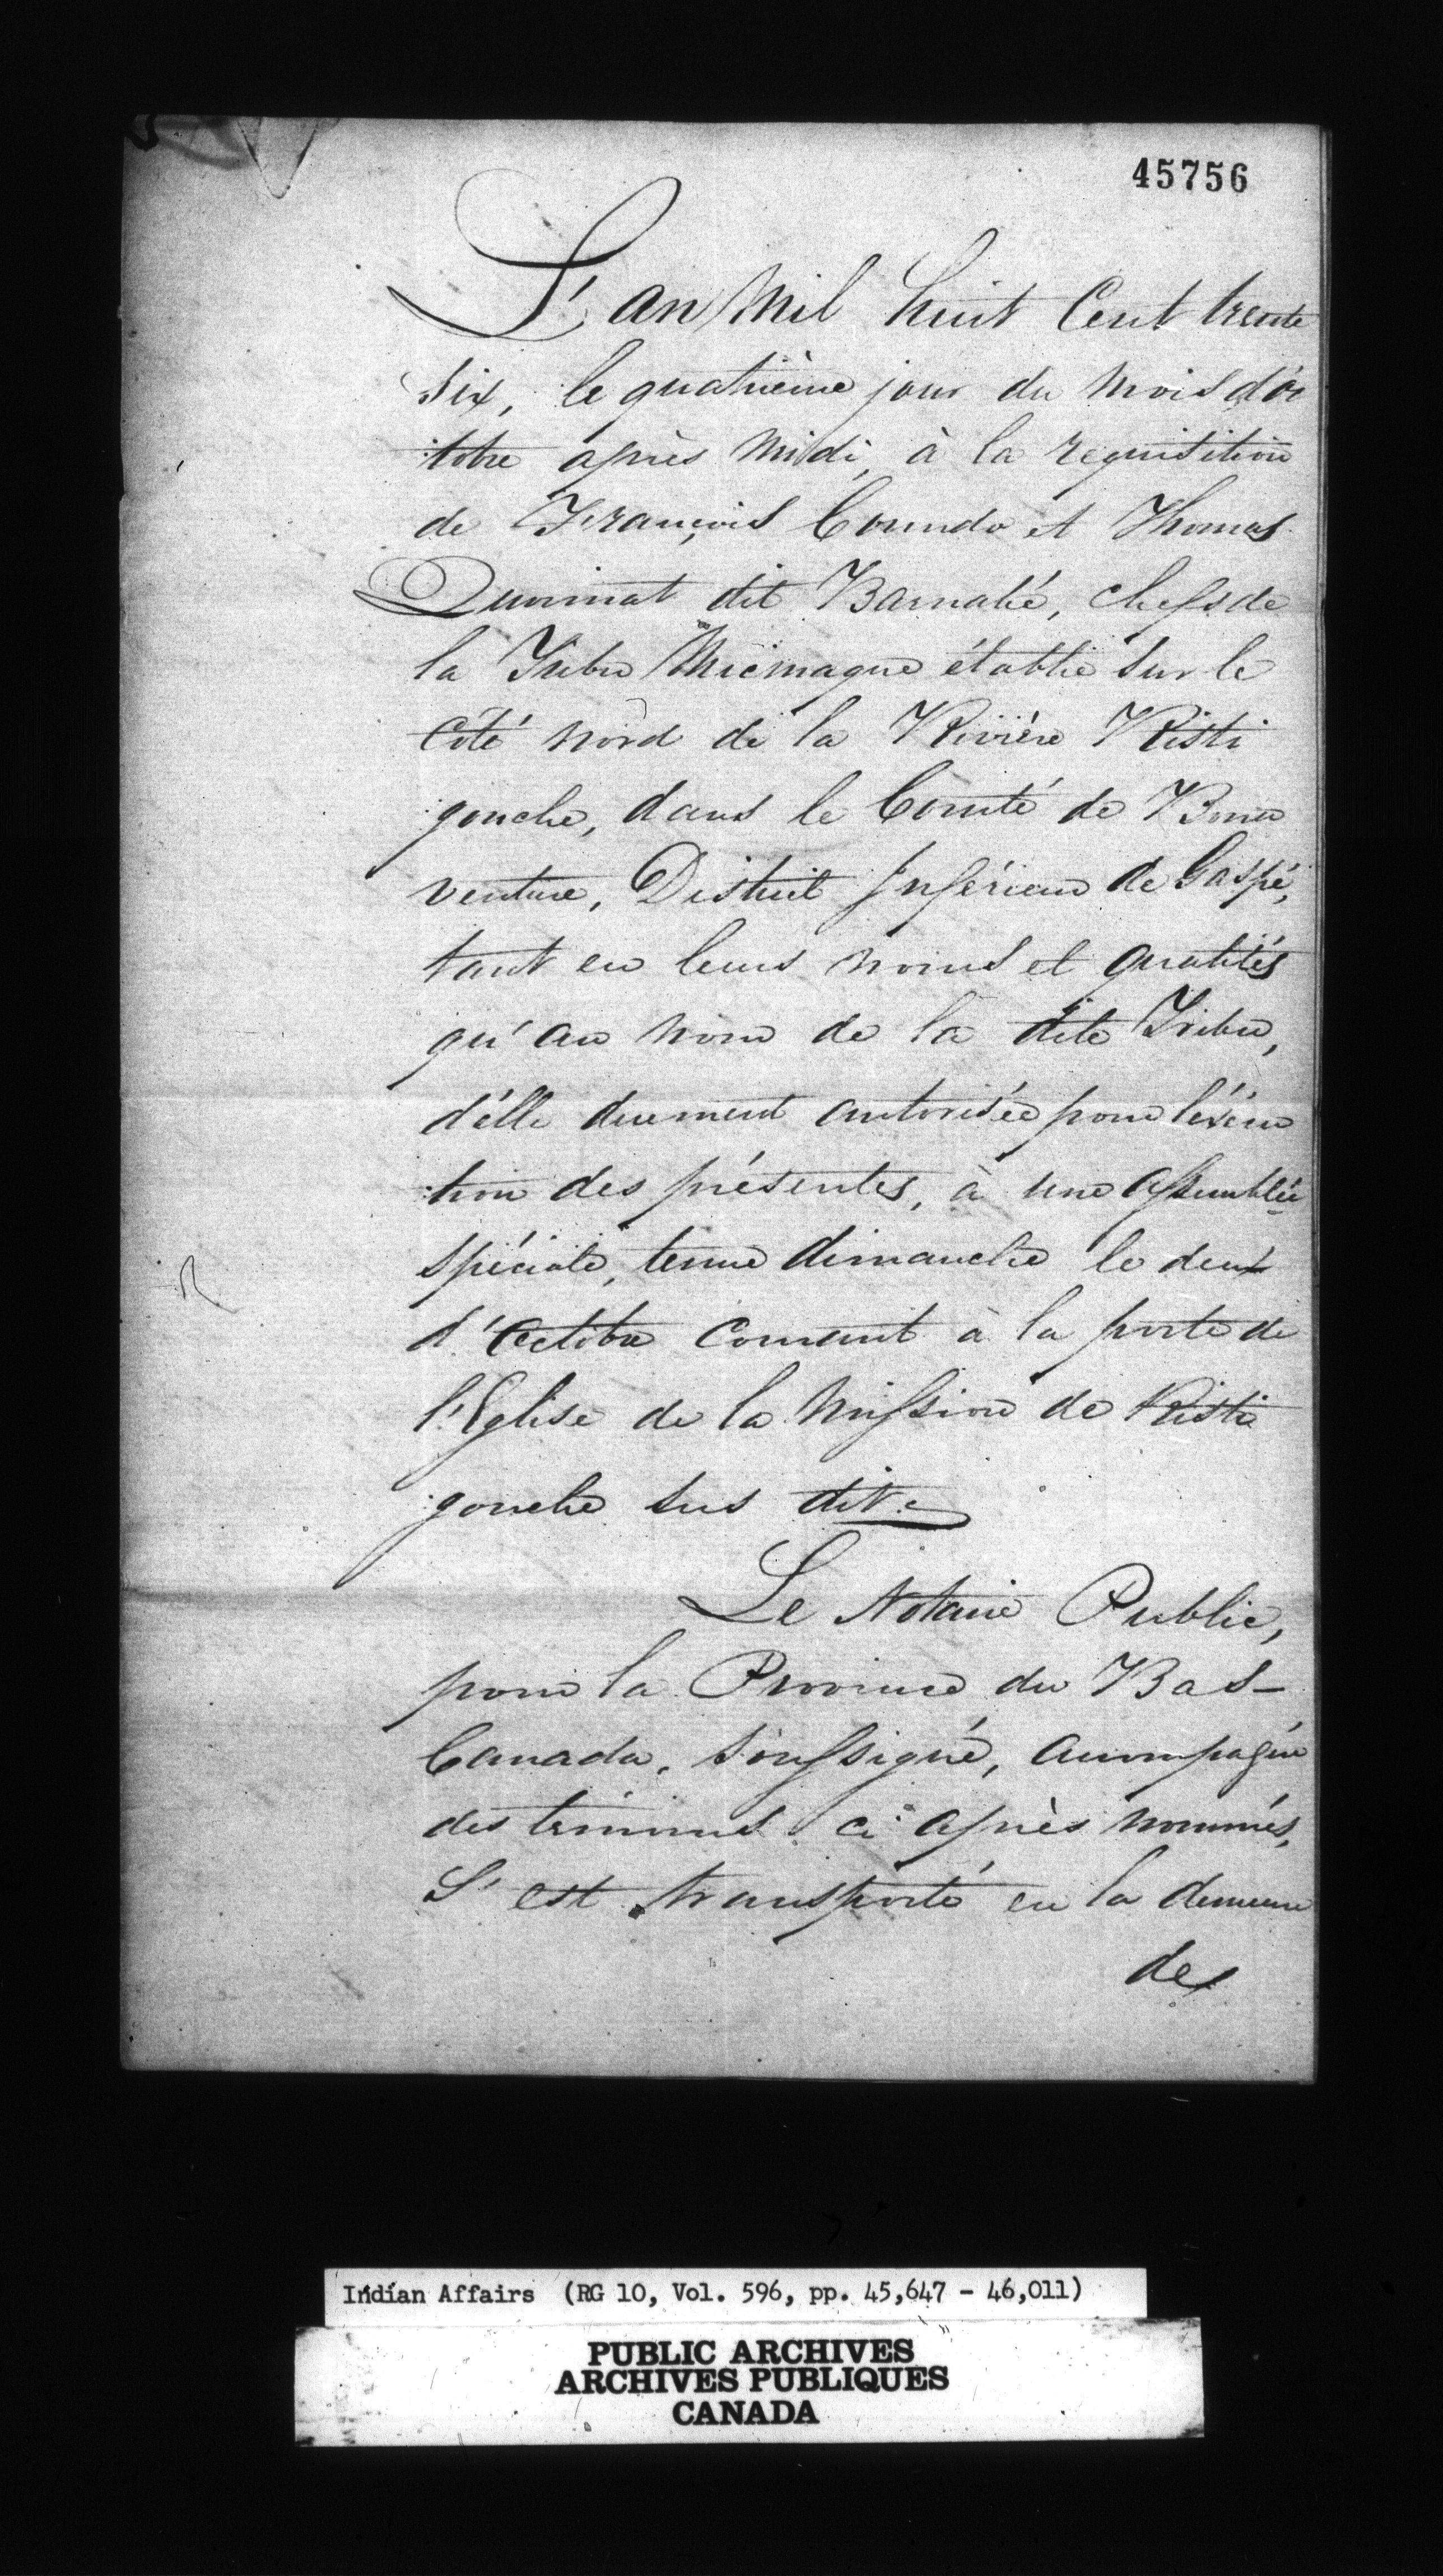 45756
L'an Mil huit Cent trente
six, le quatrième jour du mois d'oc
:tobre après Midi, à la requisition
de François Coundo et Thomas
dit Barnabé, chefs de
la Tribu Micmaque établie sur le
Côté nord de la Rivière Risti
:gouche, dans le Comté de Bona
venture, District Inférieur de Gaspé,
tant en leurs noms et qualités
qu'au nom de la dite Tribu,
d'elle duement autorisée pour l'exécu
:tion des présentes, à une assemblée
spéciale, tenue dimanche le deux
d'Octobre Courant à la porte de
l'Eglise de la Mission de Risti
:gouche sus dit.
Le Notaire Public,
pour la Province du Bas-
Canada, soussigné, accompagné
des témoins ci après nommés,
S'est transporté en la demeure
des
Indian Affairs (RG 10, Vol. 596, pp. 45,647 - 46,011)
PUBLIC ARCHIVES
ARCHIVES PUBLIQUES
CANADA